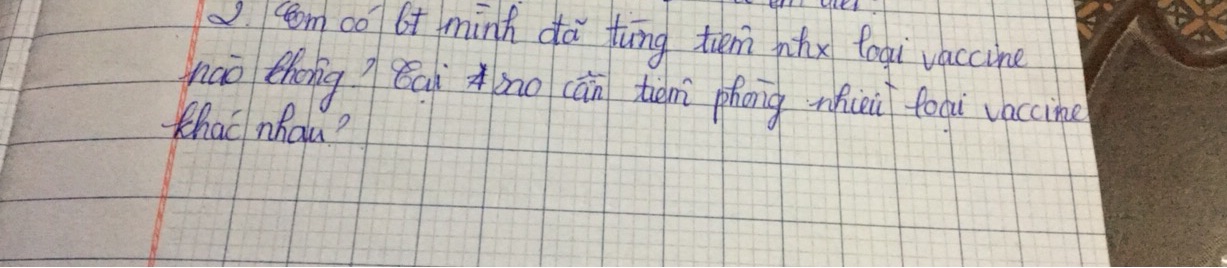 2. Em có bt mình đã từng tiêm nhx loại vaccine
nào không? Tại sao cần tiêm phòng nhiều loại vaccine
khác nhau?